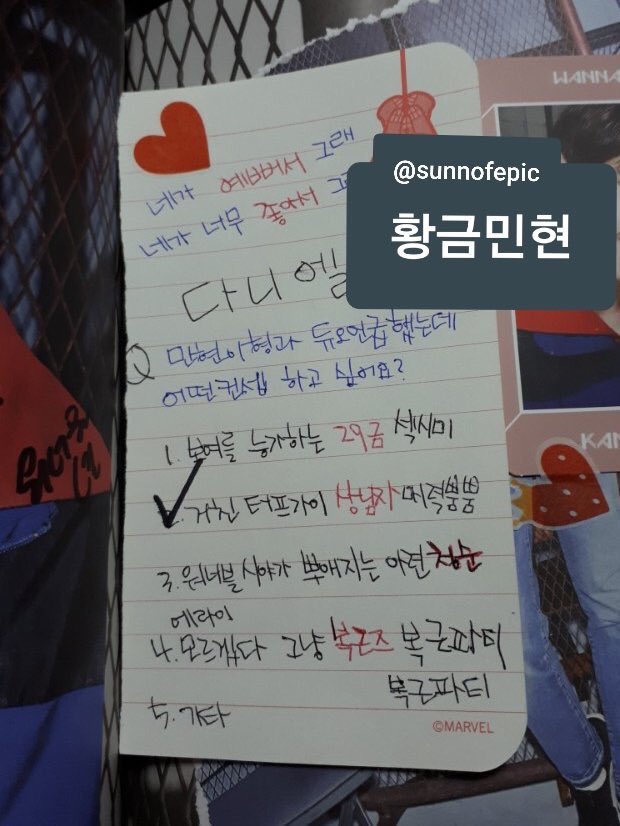 WANNA
네가 예뻐서 그래
네가 너무 좋아서
@sunnofepic
황금민현
다니엘
Q 민현이형과 듀오언급했는데
어떤컨셉 하고 싶어요?
1. 보여를 능가하는 29금 섹시미
2. 거친 터프가이 상남자 매력뿜뿜
3. 워너블 시야가 뿌얘지는 아련 청순
에라이
4. 모르겠다 그냥 복근즈 복근파티
복근파티
5. 기타
©MARVEL
KAN